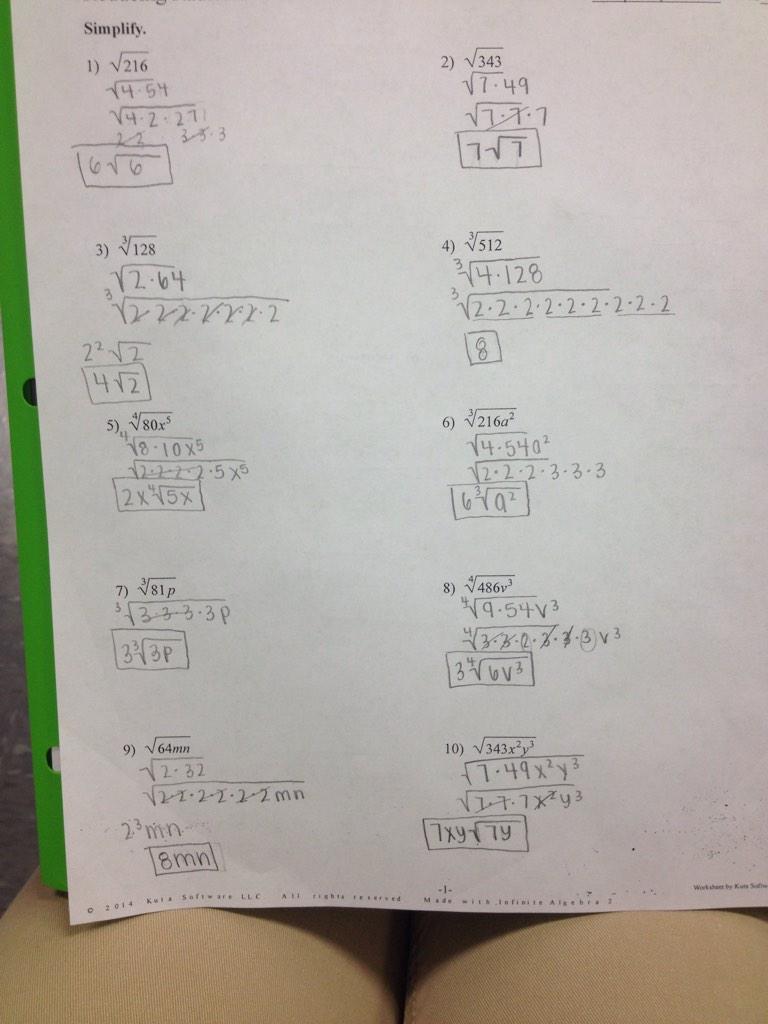 Simplify.
1) √216
√4·54
√4·2·27
2·2 3·3·3
6√6
2) √343
√7·49
√7·7·7
7√7
3) ∛128
√2·64
∛2·2·2·2·2·2·2
2²√2
4√2
4) ∛512
∛4·128
∛2·2·2·2·2·2·2·2·2
8
5) ∜80x⁵
∜8·10x⁵
√2·2·2·2·5x⁵
2x∜5x
6) ∛216a²
√4·54a²
√2·2·2·3·3·3
6∛a²
7) ∛81p
∛3·3·3·3p
3∛3p
8) ∜486v³
∜9·54v³
∜3·3·2·3·3·3v³
3∜6v³
9) √64mn
√2·32
√2·2·2·2·2·2mn
2³mn
8mn
10) √343x²y³
√7·49x²y³
√7·7·7x²y³
7xy√7y
-1-
© 2014 Kuta Software LLC All rights reserved Made with Infinite Algebra 2
Worksheet by Kuta